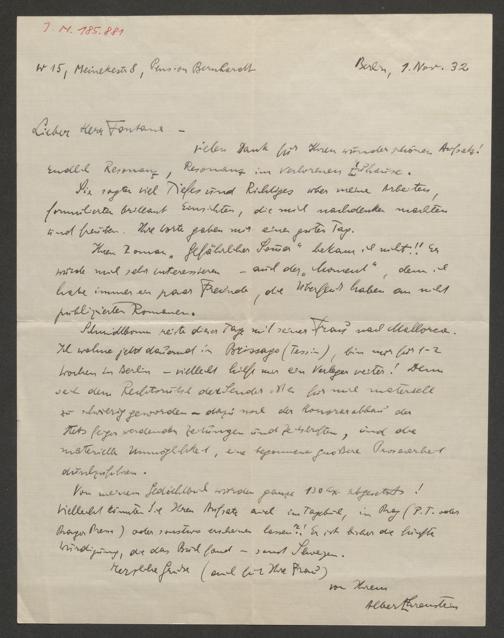 J. N. 185.881
W 15, Meinekestr 8, Pension Bernhardt Berlin, 1. Nov. 32
Lieber Herr Fontana –
vielen Dank für Ihren wunderschönen Aufsatz!
Endlich Resonanz, Resonanz im verlorenen
Sie sagten viel Tiefes und Richtiges über meine Arbeiten,
formulierten brillant Einsichten, die mich nachdenken machten
und freuten. Ihre Worte gaben mir einen guten Tag.
Ihren Roman „Gefährlicher Sommer" bekam ich nicht!! Er
würde mich sehr interessieren – auch der „Moment", denn ich
habe immer ein paar Freunde, die Überfluß haben an nicht
publizierten Romanen.
Schmidtbonn reiste dieser Tage mit seiner Frau nach Mallorca.
Ich wohne jetzt dauernd in Brissago (Tessin), bin nur für 1–2
Wochen in Berlin – vielleicht hilft mir ein Verleger weiter! Denn
seit dem der Länder ist für mich materiell
zu schwierig geworden – dazu noch der Honorarabbau der
stets feiger werdenden Zeitungen und Zeitschriften, und die
materielle Unmöglichkeit, eine begonnene größere Prosaarbeit
durchzuführen.
Von meinem Gedichtbuch wurden ganze 130 Ex abgesetzt!
Vielleicht könnten Sie Ihren Aufsatz auch im Tagebuch, in Prag (P.T. oder
Prager Presse) oder sonstwo erscheinen lassen?! Er ist bisher die
Würdigung, die das Buch fand – sonst Schweigen.
Herzliche Grüße (auch für Ihre Frau)
von Ihrem
Albert Ehrenstein